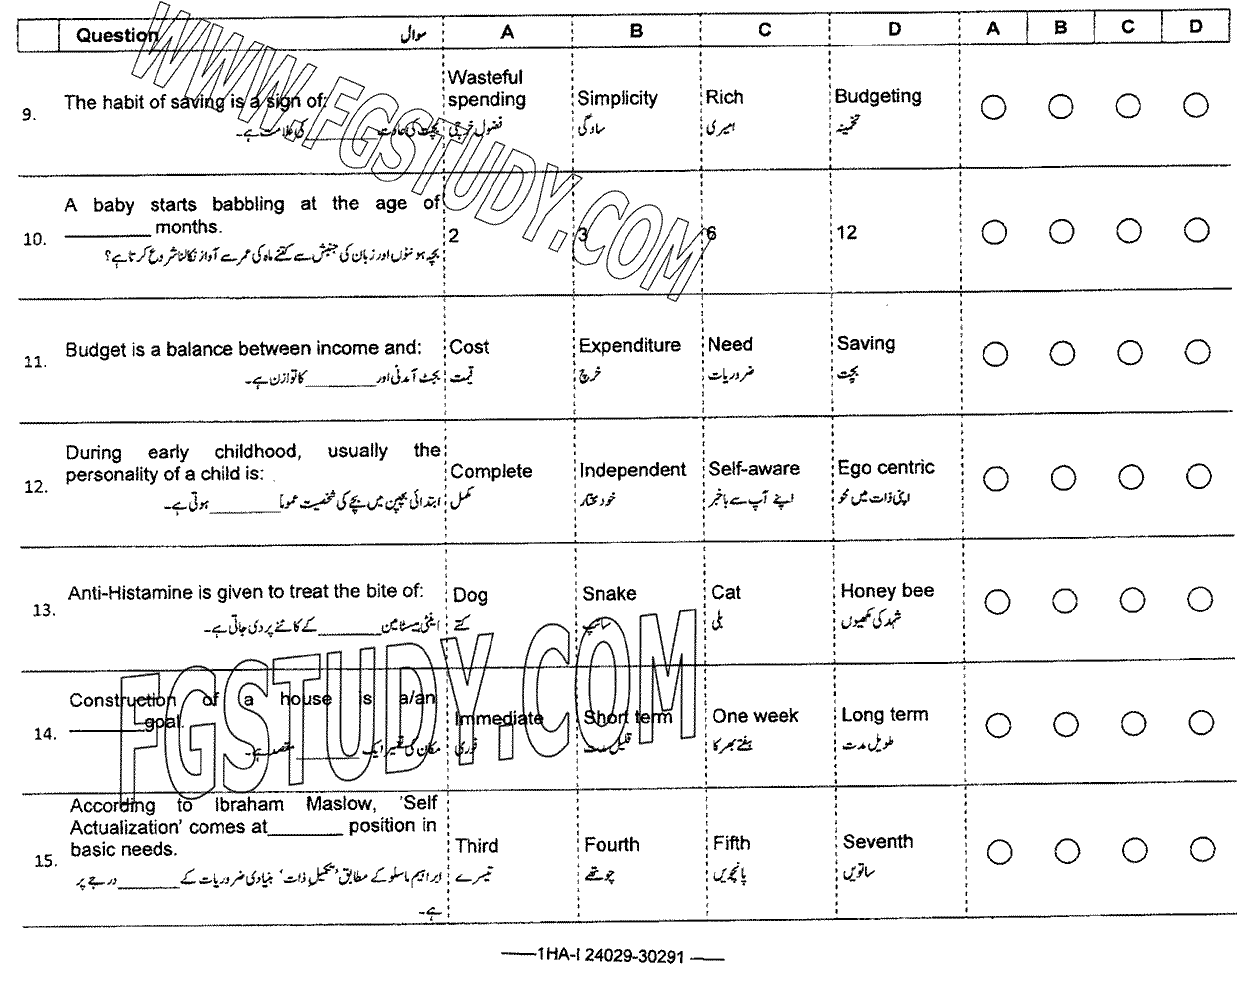 Question سوال A B C D A B C D
9. The habit of saving is a sign of: Wasteful spending Simplicity Rich Budgeting
بچت کی عادت ________ کی علامت ہے۔ فضول خرچی سادگی امیری تخمینہ
10. A baby starts babbling at the age of
________ months. 2 3 6 12
بچہ ہونٹوں اور زبان کی جنبش سے کتنے ماہ کی عمر سے آواز نکالنا شروع کرتا ہے؟
11. Budget is a balance between income and: Cost Expenditure Need Saving
بجٹ آمدنی اور ________ کا توازن ہے۔ قیمت خرچ ضروریات بچت
12. During early childhood, usually the
personality of a child is: Complete Independent Self-aware Ego centric
ابتدائی بچپن میں بچے کی شخصیت عموماً ________ ہوتی ہے۔ مکمل خود مختار اپنے آپ سے باخبر اپنی ذات میں محو
13. Anti-Histamine is given to treat the bite of: Dog Snake Cat Honey bee
اینٹی ہسٹامین ________ کے کاٹنے پر دی جاتی ہے۔ کتے سانپ بلی شہد کی مکھیوں
14. Construction of a house is a/an
________ goal. Immediate Short term One week Long term
مکان کی تعمیر ایک ________ مقصد ہے۔ فوری قلیل مدت ہفتے بھر کا طویل مدت
15. According to Ibraham Maslow, 'Self
Actualization' comes at ________ position in
basic needs. Third Fourth Fifth Seventh
ابراہیم ماسلو کے مطابق 'تکمیل ذات' بنیادی ضروریات کے ________ درجے پر
ہے۔ تیسرے چوتھے پانچویں ساتویں
——1HA-I 24029-30291 ——
WWW.FGSTUDY.COM
FGSTUDY.COM